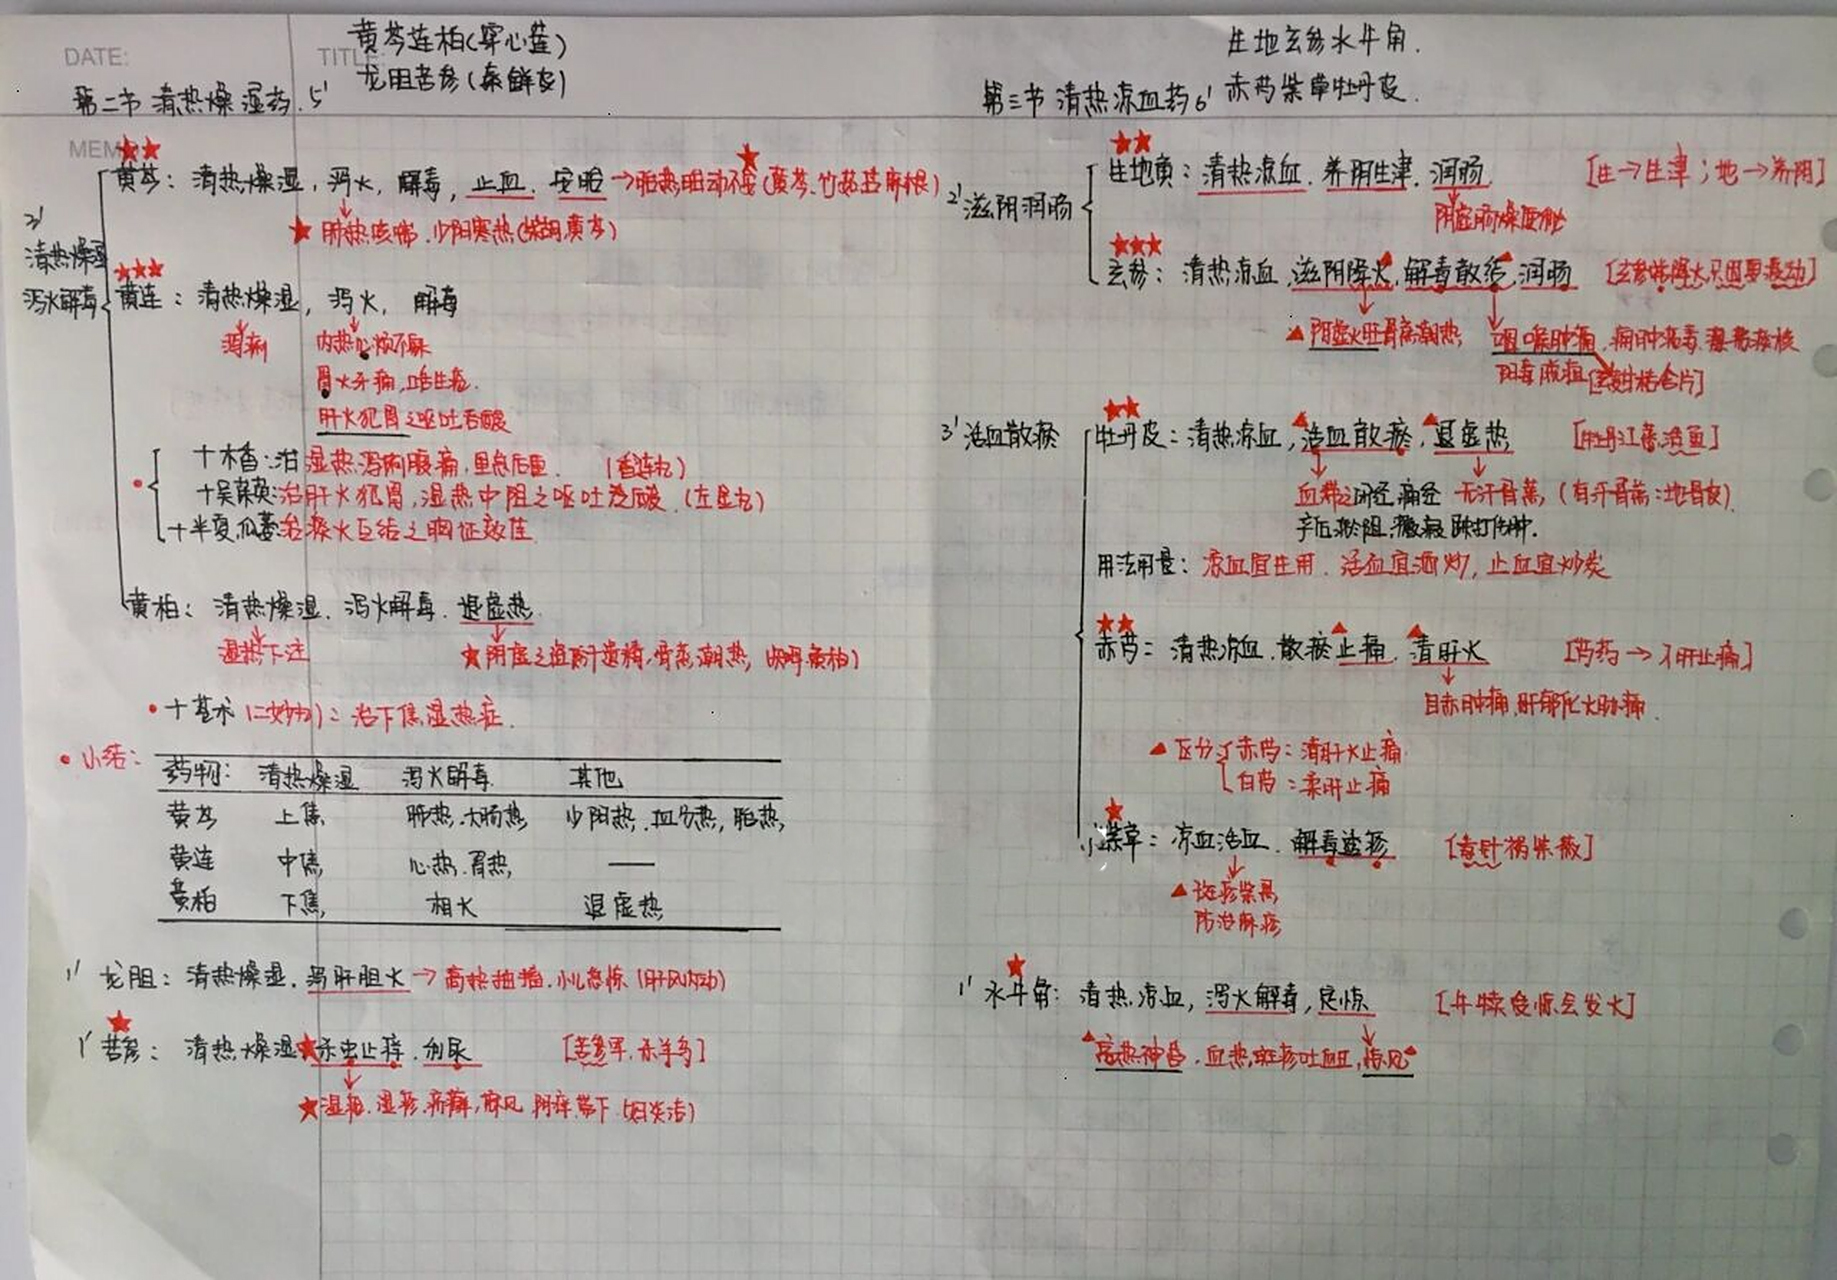 DATE:
TITLE:
黄芩连柏(穿心莲)
龙胆苦参(秦鲜皮)
第二节 清热燥湿药 5'
MEM
黄芩：清热燥湿，泻火，解毒，止血．安胎→胎热胎动不安(黄芩、竹茹苎麻根)
肺热咳嗽．少阳寒热(柴胡,黄芩)
3'
清热燥湿
泻火解毒
黄连：清热燥湿，泻火，解毒
泻痢
内热心烦不寐
胃火牙痛,口舌生疮.
肝火犯胃之呕吐吞酸
十木香:治湿热泻痢腹痛,里急后重． (香连丸)
十吴茱萸:治肝火犯胃,湿热中阻之呕吐泛酸．(左金丸)
十半夏,瓜蒌:治痰火互结之胸证效佳
黄柏：清热燥湿．泻火解毒．退虚热.
湿热下注
阴虚之盗汗遗精,骨蒸潮热, (知母,黄柏)
十苍术(二妙丸)：治下焦湿热症.
小结：
药物： 清热燥湿 泻火解毒 其他
黄芩 上焦 肺热.大肠热 少阳热.血分热,胎热,
黄连 中焦, 心热.胃热, ——
黄柏 下焦, 相火 退虚热
1' 龙胆：清热燥湿．泻肝胆火→高热抽搐.小儿急惊(肝风内动)
1' 苦参：清热燥湿 杀虫止痒．利尿 [苦参军.杀羊鸟]
湿疮.湿疹.疥癣,麻风 阴痒.带下(妇炎洁)
生地玄参水牛角.
赤芍紫草牡丹皮.
第三节 清热凉血药 6'
2' 滋阴润肠
生地黄：清热凉血．养阴生津．润肠 [生→生津；地→养阴]
阴虚肠燥便秘
玄参：清热凉血,滋阴降火,解毒散结,润肠
阴虚火旺骨蒸潮热 咽喉肿痛,痈肿疮毒,瘰疬痰核
3' 活血散瘀
牡丹皮：清热凉血,活血散瘀,退虚热 [牡丹江畜活鱼]
血滞之闭经痛经 无汗骨蒸,(有汗骨蒸:地骨皮)
产后瘀阻,癥瘕 跌打伤肿.
用法用量：凉血宜生用．活血宜酒炒,止血宜炒炭
赤芍：清热凉血．散瘀止痛．清肝火 [芍药→ 肝止痛]
目赤肿痛,肝郁化火胁痛.
区分 赤芍：清肝火止痛
白芍：柔肝止痛
紫草：凉血活血．解毒透疹 [毒针褐紫薇]
斑疹紫黑
防治麻疹
1' 水牛角：清热凉血,泻火解毒,定惊 [牛犊受惊会发火]
高热神昏．血热,斑疹吐血衄,惊风